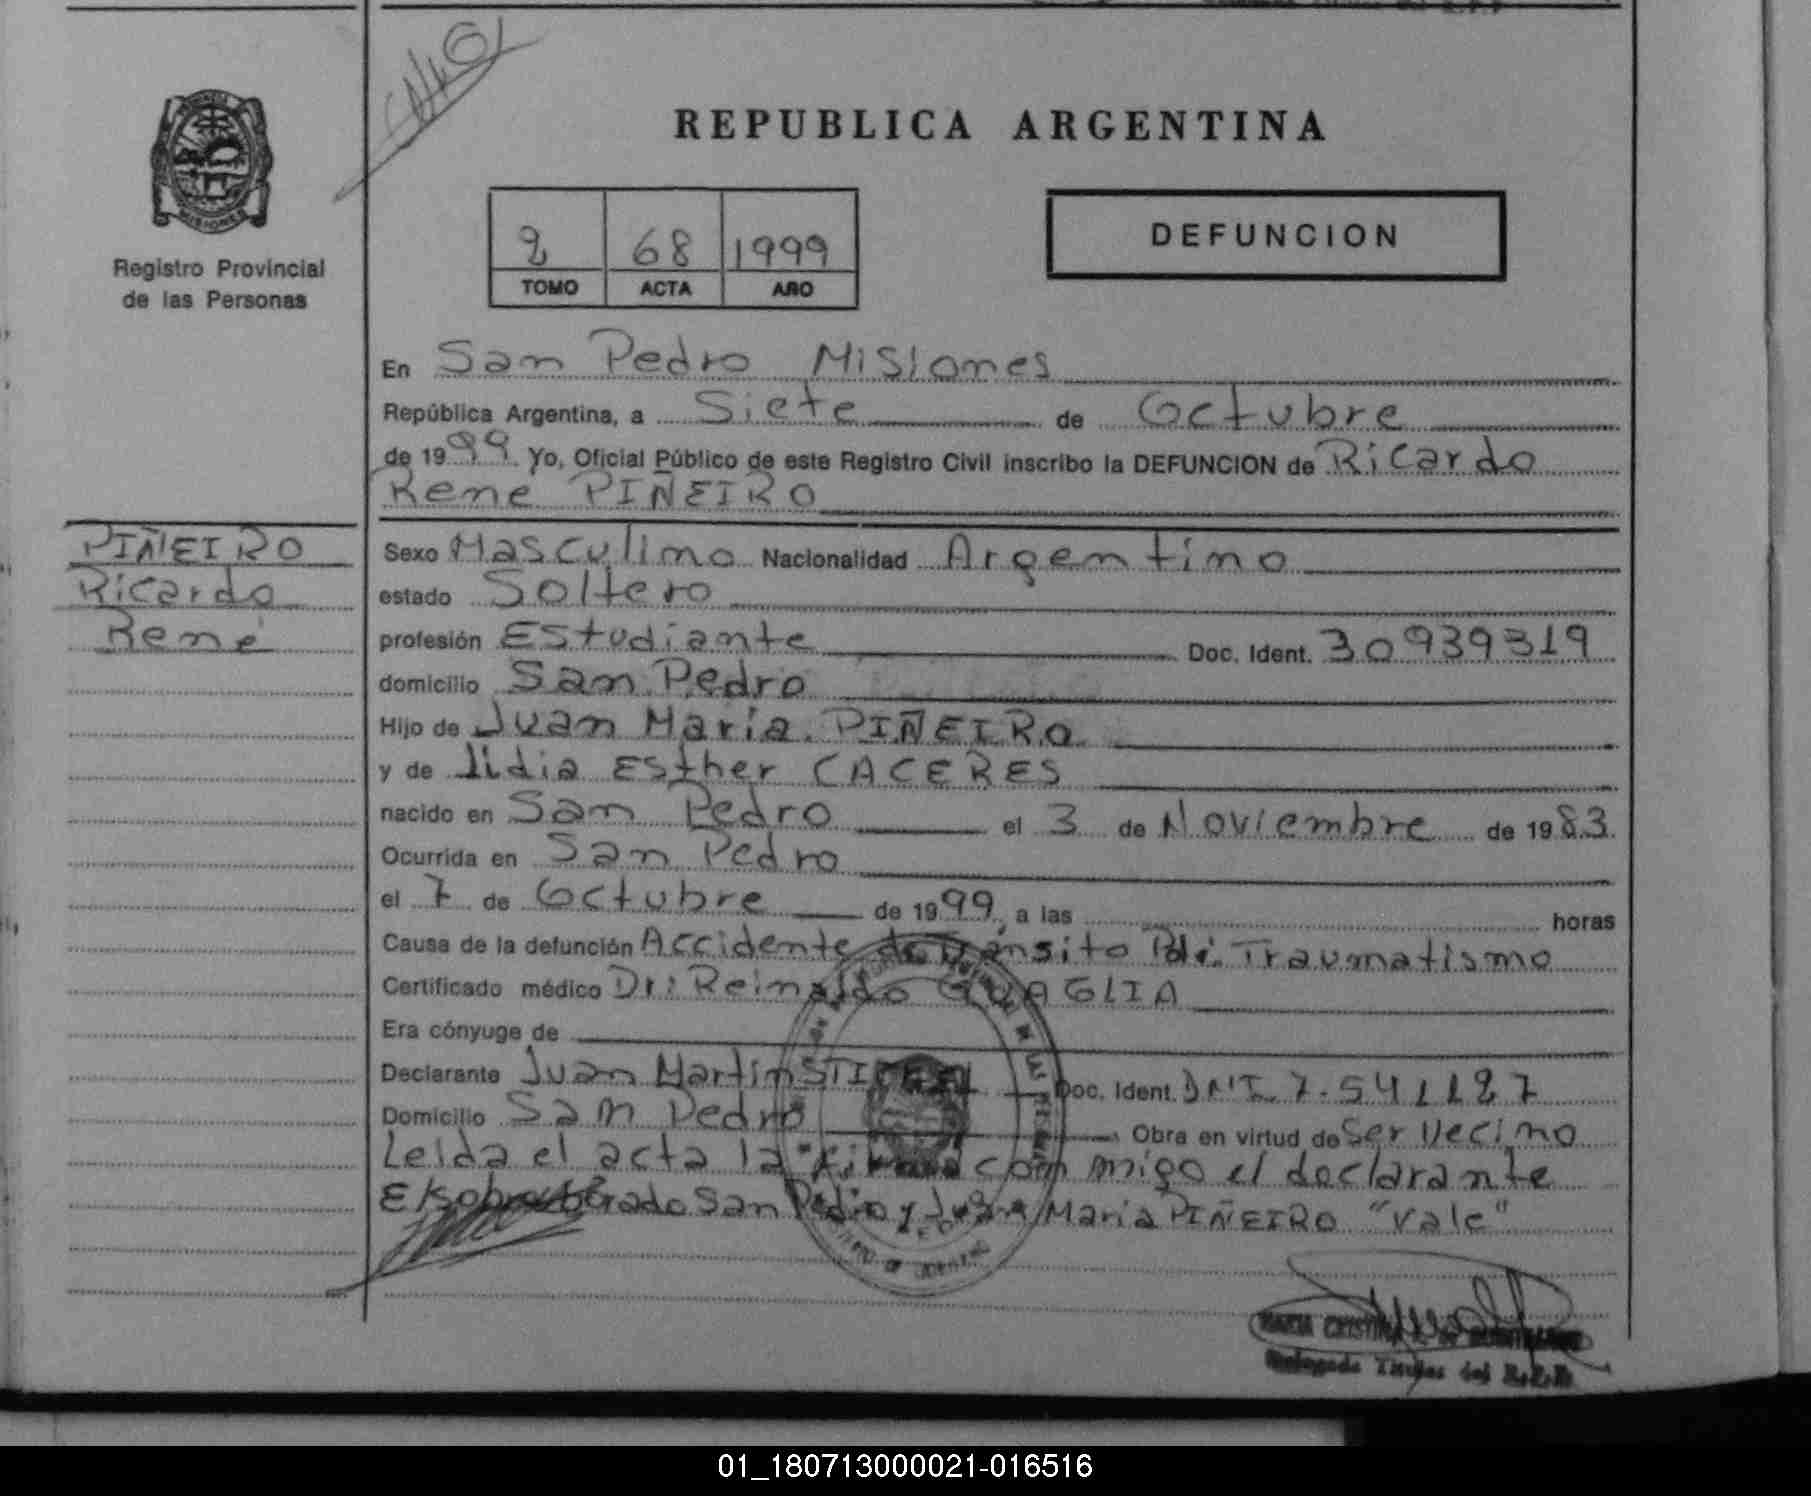 REPUBLICA ARGENTINA
MISIONES
Registro Provincial
de las Personas
2 68 1999
TOMO ACTA AÑO
DEFUNCION
En San Pedro Misiones
República Argentina, a Siete de Octubre
de 1999 Yo, Oficial Público de este Registro Civil inscribo la DEFUNCION de Ricardo
Rene PIÑEIRO
PIÑEIRO
Ricardo
René
Sexo Masculino Nacionalidad Argentino
estado Soltero
profesión Estudiante Doc. Ident. 30939319
domicilio San Pedro
Hijo de Juan Maria PIÑEIRO
y de lidia Esther CACERES
nacido en San Pedro el 3 de Noviembre de 1983
Ocurrida en San Pedro
el 7 de Octubre de 1999, a las horas
Causa de la defunción Accidente de Transito Traumatismo
Certificado médico Dr: Reinaldo QUAGLIA
Era cónyuge de
Declarante Juan Martin Doc. Ident. DNI 7.541127
Domicilio San Pedro Obra en virtud de Ser Vecino
Leida el acta la firma con migo el declarante
El sobreborrado San Pedro y Juan Maria PIÑEIRO "Vale"
MARIA CRISTINA
Delegada Titular del R.P.P.
01_180713000021-016516